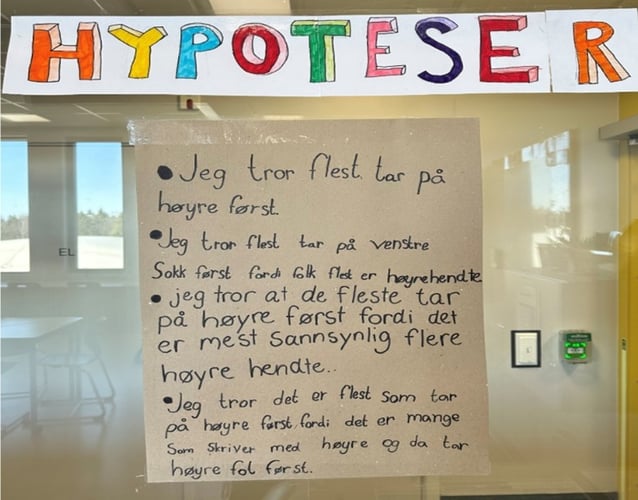 HYPOTESER
• Jeg tror flest tar på
høyre først.
• Jeg tror flest tar på venstre
Sokk først fordi folk flest er høyrehendte
• jeg tror at de fleste tar
på høyre først fordi det
er mest sannsynlig flere
høyre hendte..
• Jeg tror det er flest som tar
på høyre først, fordi det er mange
som skriver med høyre og da tar
høyre fot først.
EL